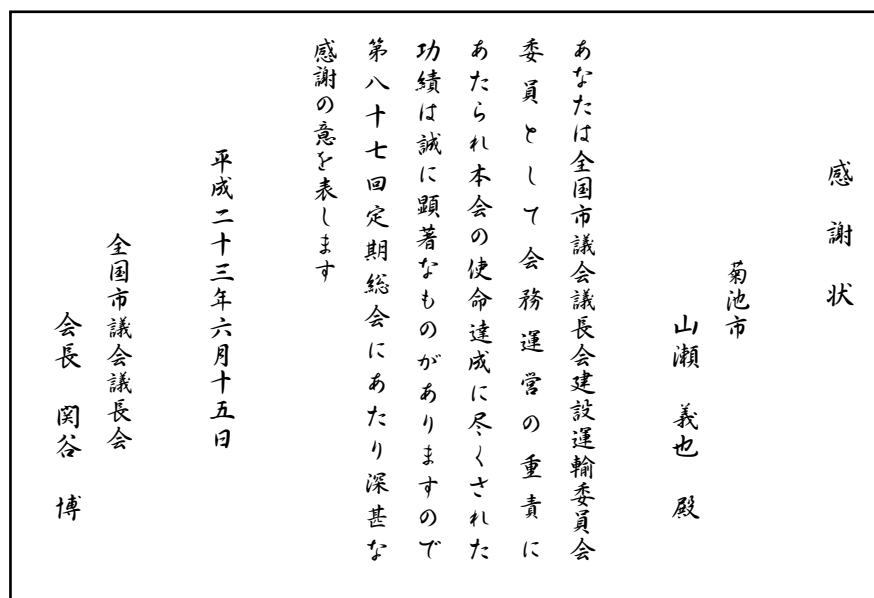 感謝状
菊池市
山瀬 義也 殿
あなたは全国市議会議長会建設運輸委員会
委員として会務運営の重責に
あたられ本会の使命達成に尽くされた
功績は誠に顕著なものがありますので
第八十七回定期総会にあたり深甚な
感謝の意を表します
平成二十三年六月十五日
全国市議会議長会
会長 関谷 博